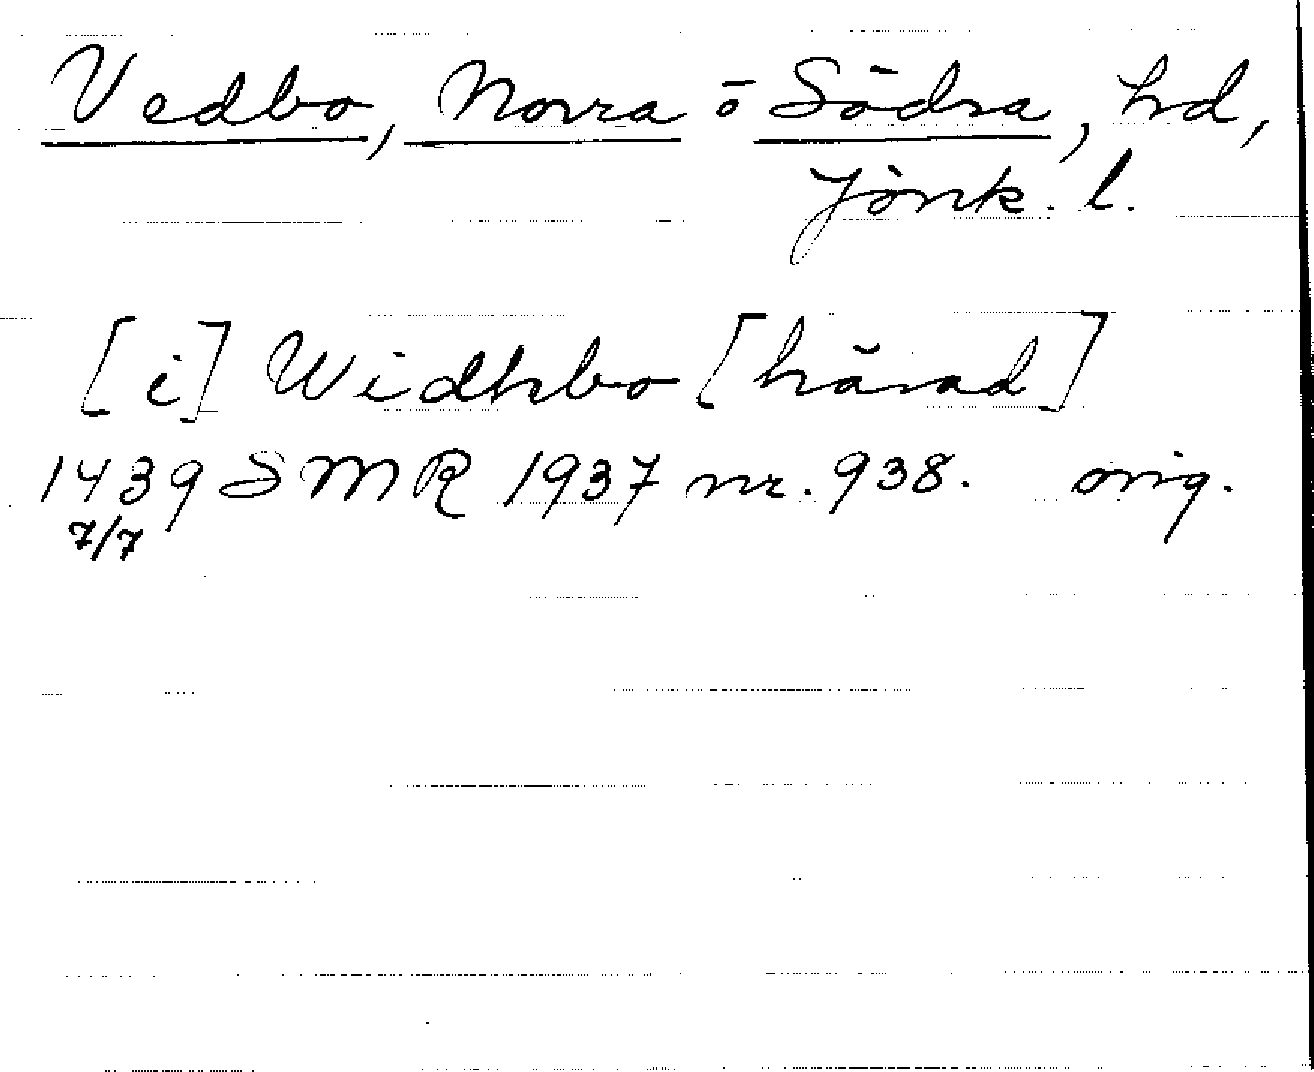 Vedbo, Norra o Södra, hd,
Jönk. l.
[i] Widhbo [härad]
1439 SMR 1937 nr. 938. orig.
7/7